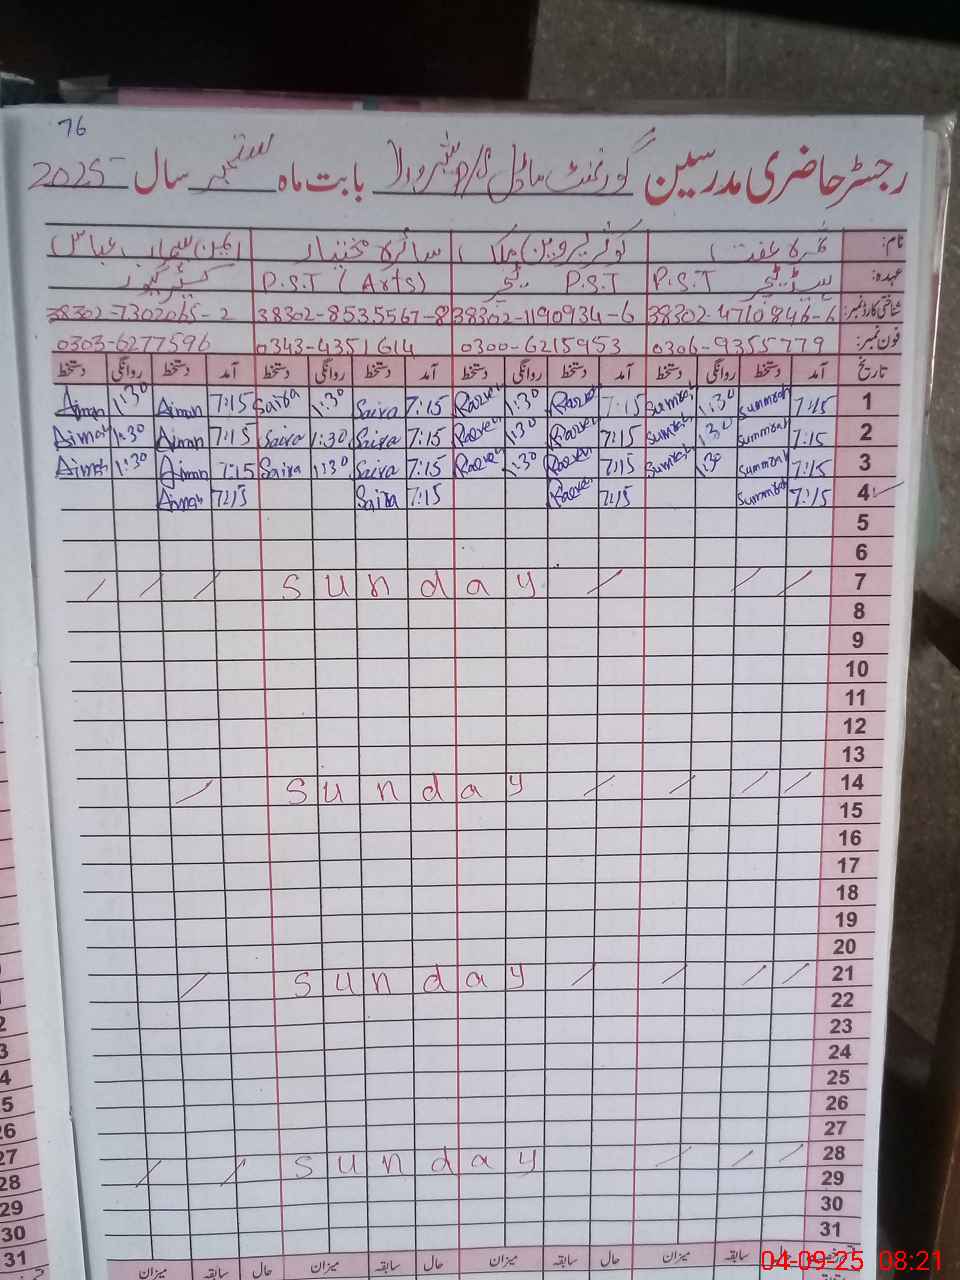 76
رجسٹر حاضری مدرسین گورنمنٹ ماڈل بابت ماہ ستمبر سال 2025
نام: ثمرہ عفت کوثر پروین ملک سائرہ مختیار ایمن سیماب عباس
عہدہ: P.S.T P.S.T ٹیچر P.S.T (Arts) کئیر گیور
شناختی کارڈ نمبر: 38302-4710846-6 38302-1190934-6 38302-8535567-8 38302-7302065-2
فون نمبر: 0306-9355779 0300-6215953 0343-4351614 0303-6277596
تاریخ آمد دستخط روانگی دستخط آمد دستخط روانگی دستخط آمد دستخط روانگی دستخط آمد دستخط روانگی دستخط
1 7:15 Summrah 1:30 Sumrah 7:15 1:30 7:15 Saira 1:30 Saira 7:15 Aiman 1:30 Aiman
2 7:15 Summrah 1:30 Sumrah 7:15 1:30 7:15 Saira 1:30 Saira 7:15 Aiman 1:30 Aiman
3 7:15 Summrah 1:30 Sumrah 7:15 1:30 7:15 Saira 1:30 Saira 7:15 Aiman 1:30 Aiman
4 7:15 Summrah 7:15 7:15 Saira 7:15 Aiman
5
6
7 Sunday
8
9
10
11
12
13
14 Sunday
15
16
17
18
19
20
21 Sunday
22
23
24
25
26
27
28 Sunday
29
30
31
حال سابقہ میزان حال سابقہ میزان حال سابقہ میزان
04-09-25 08:21
26
27
28
29
30
31